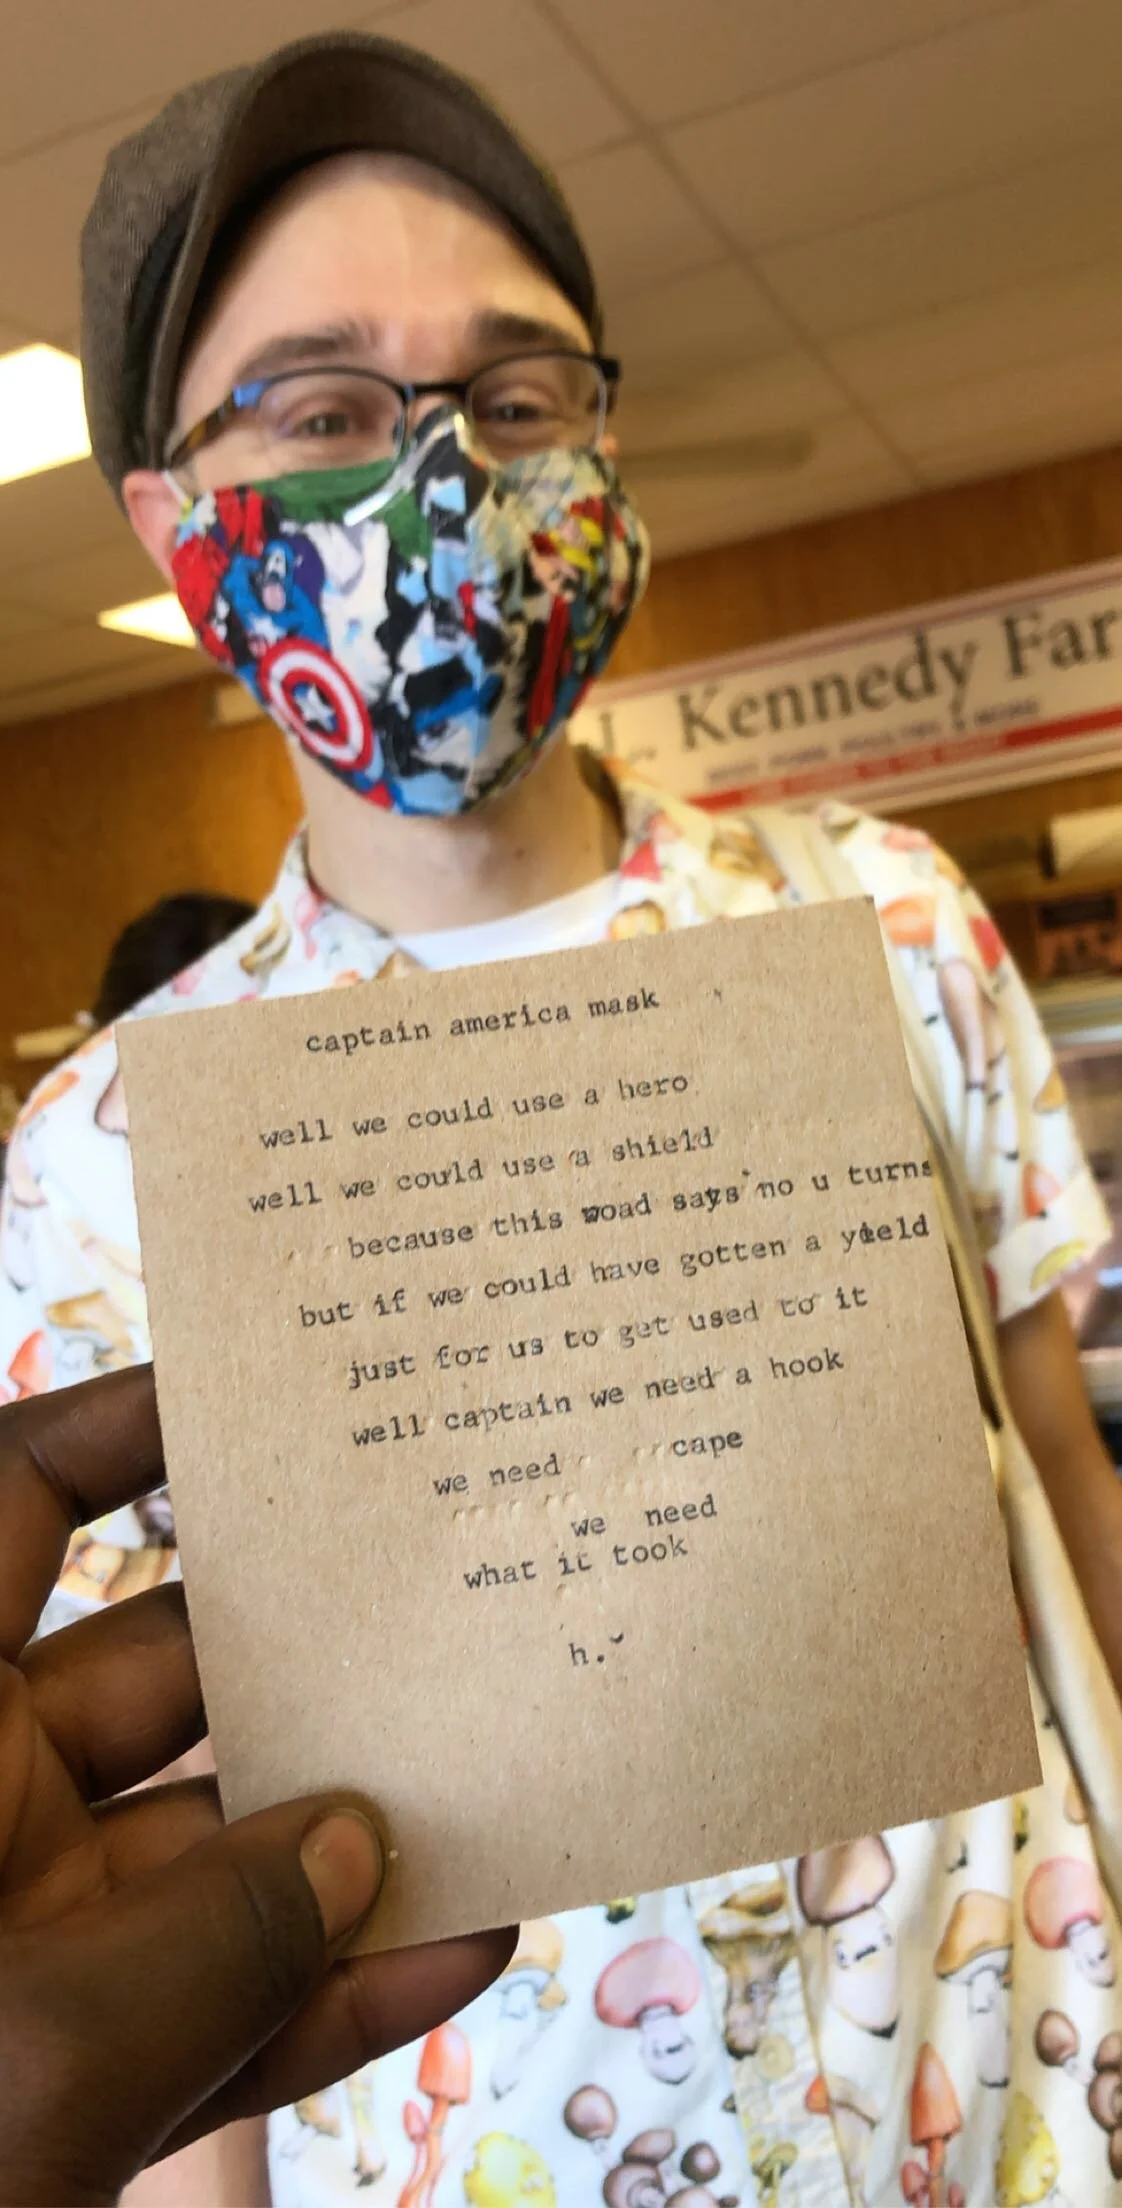 L. Kennedy Far
captain america mask
well we could use a hero
well we could use a shield
because this road says no u turns
but if we could have gotten a yield
just for us to get used to it
well captain we need a hook
we need cape
we need
what it took
h.